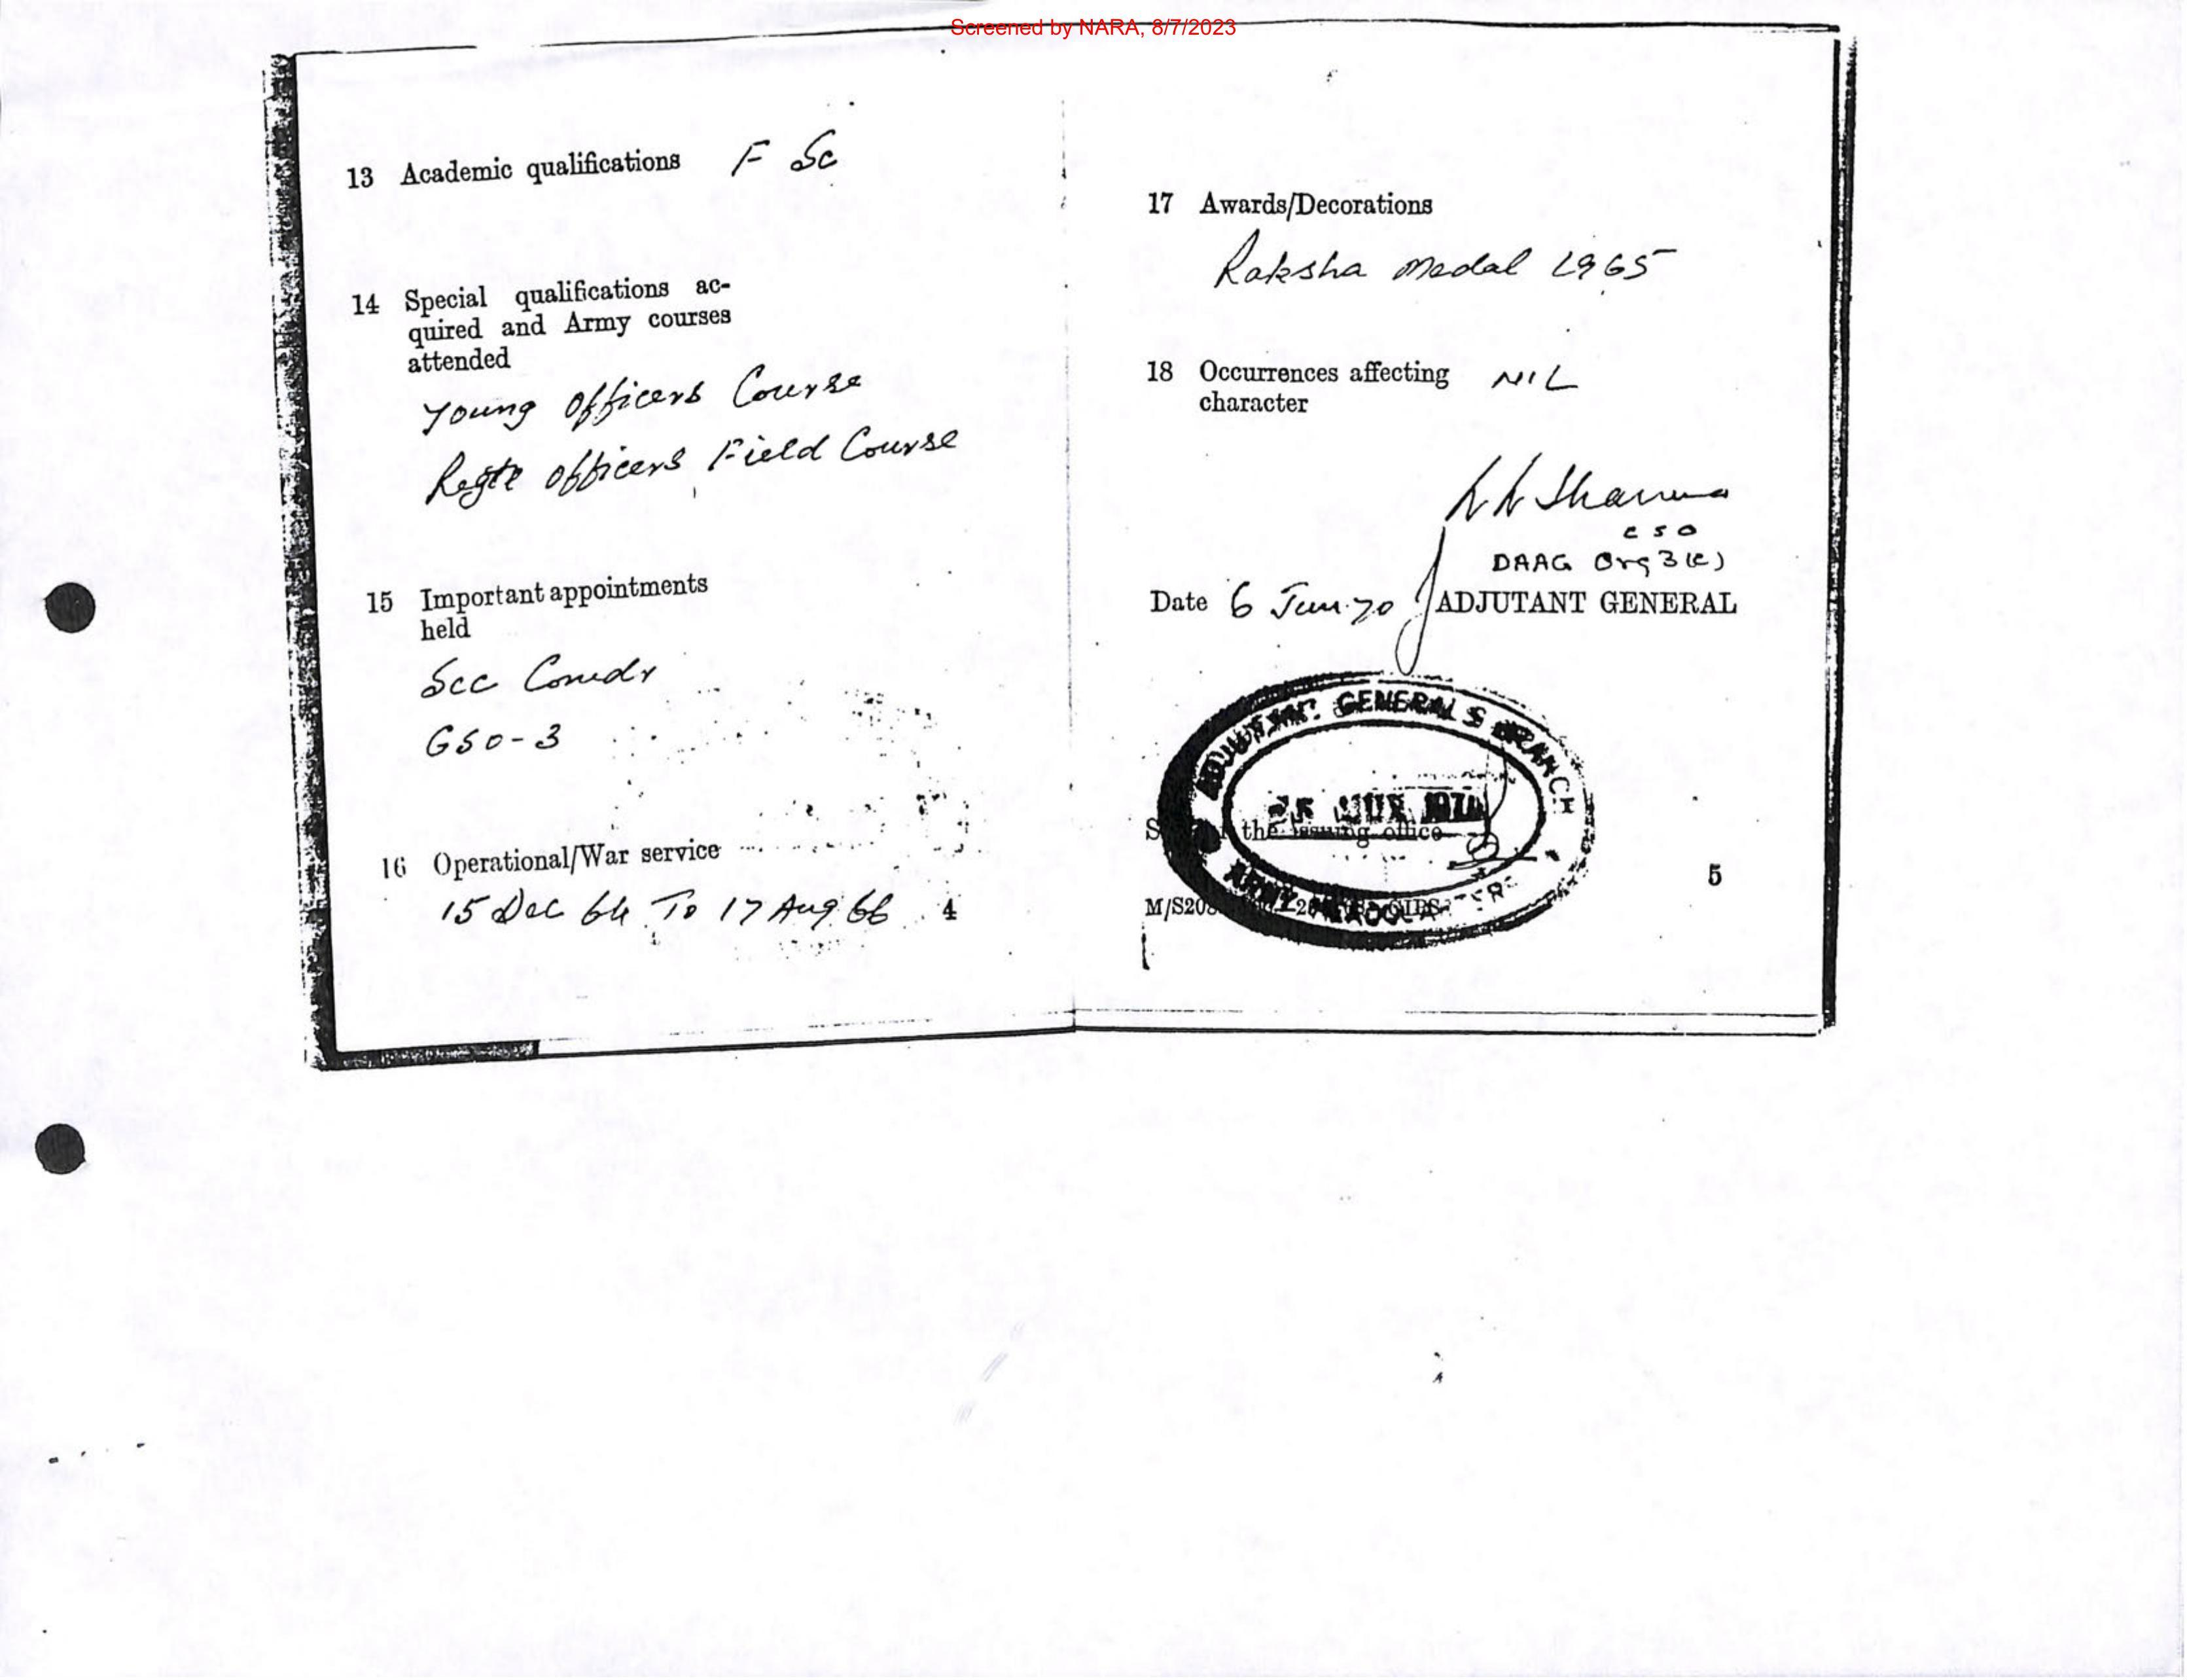 Screened by NARA, 8/7/2023
13 Academic qualifications F Sc
14 Special qualifications ac-
quired and Army courses
attended
Young Officers Course
Officers Field Course
15 Important appointments
held
GSO-3
16 Operational/War service
15 Dec 64 To 17 Aug 66
4
17 Awards/Decorations
Raksha Medal 1965
18 Occurrences affecting NIL
character
Sharma
CSO
DAAG Org 3 (c)
Date 6 Jun 70 ADJUTANT GENERAL
GENERAL S BRANCH
the issuing office
ARMY
5